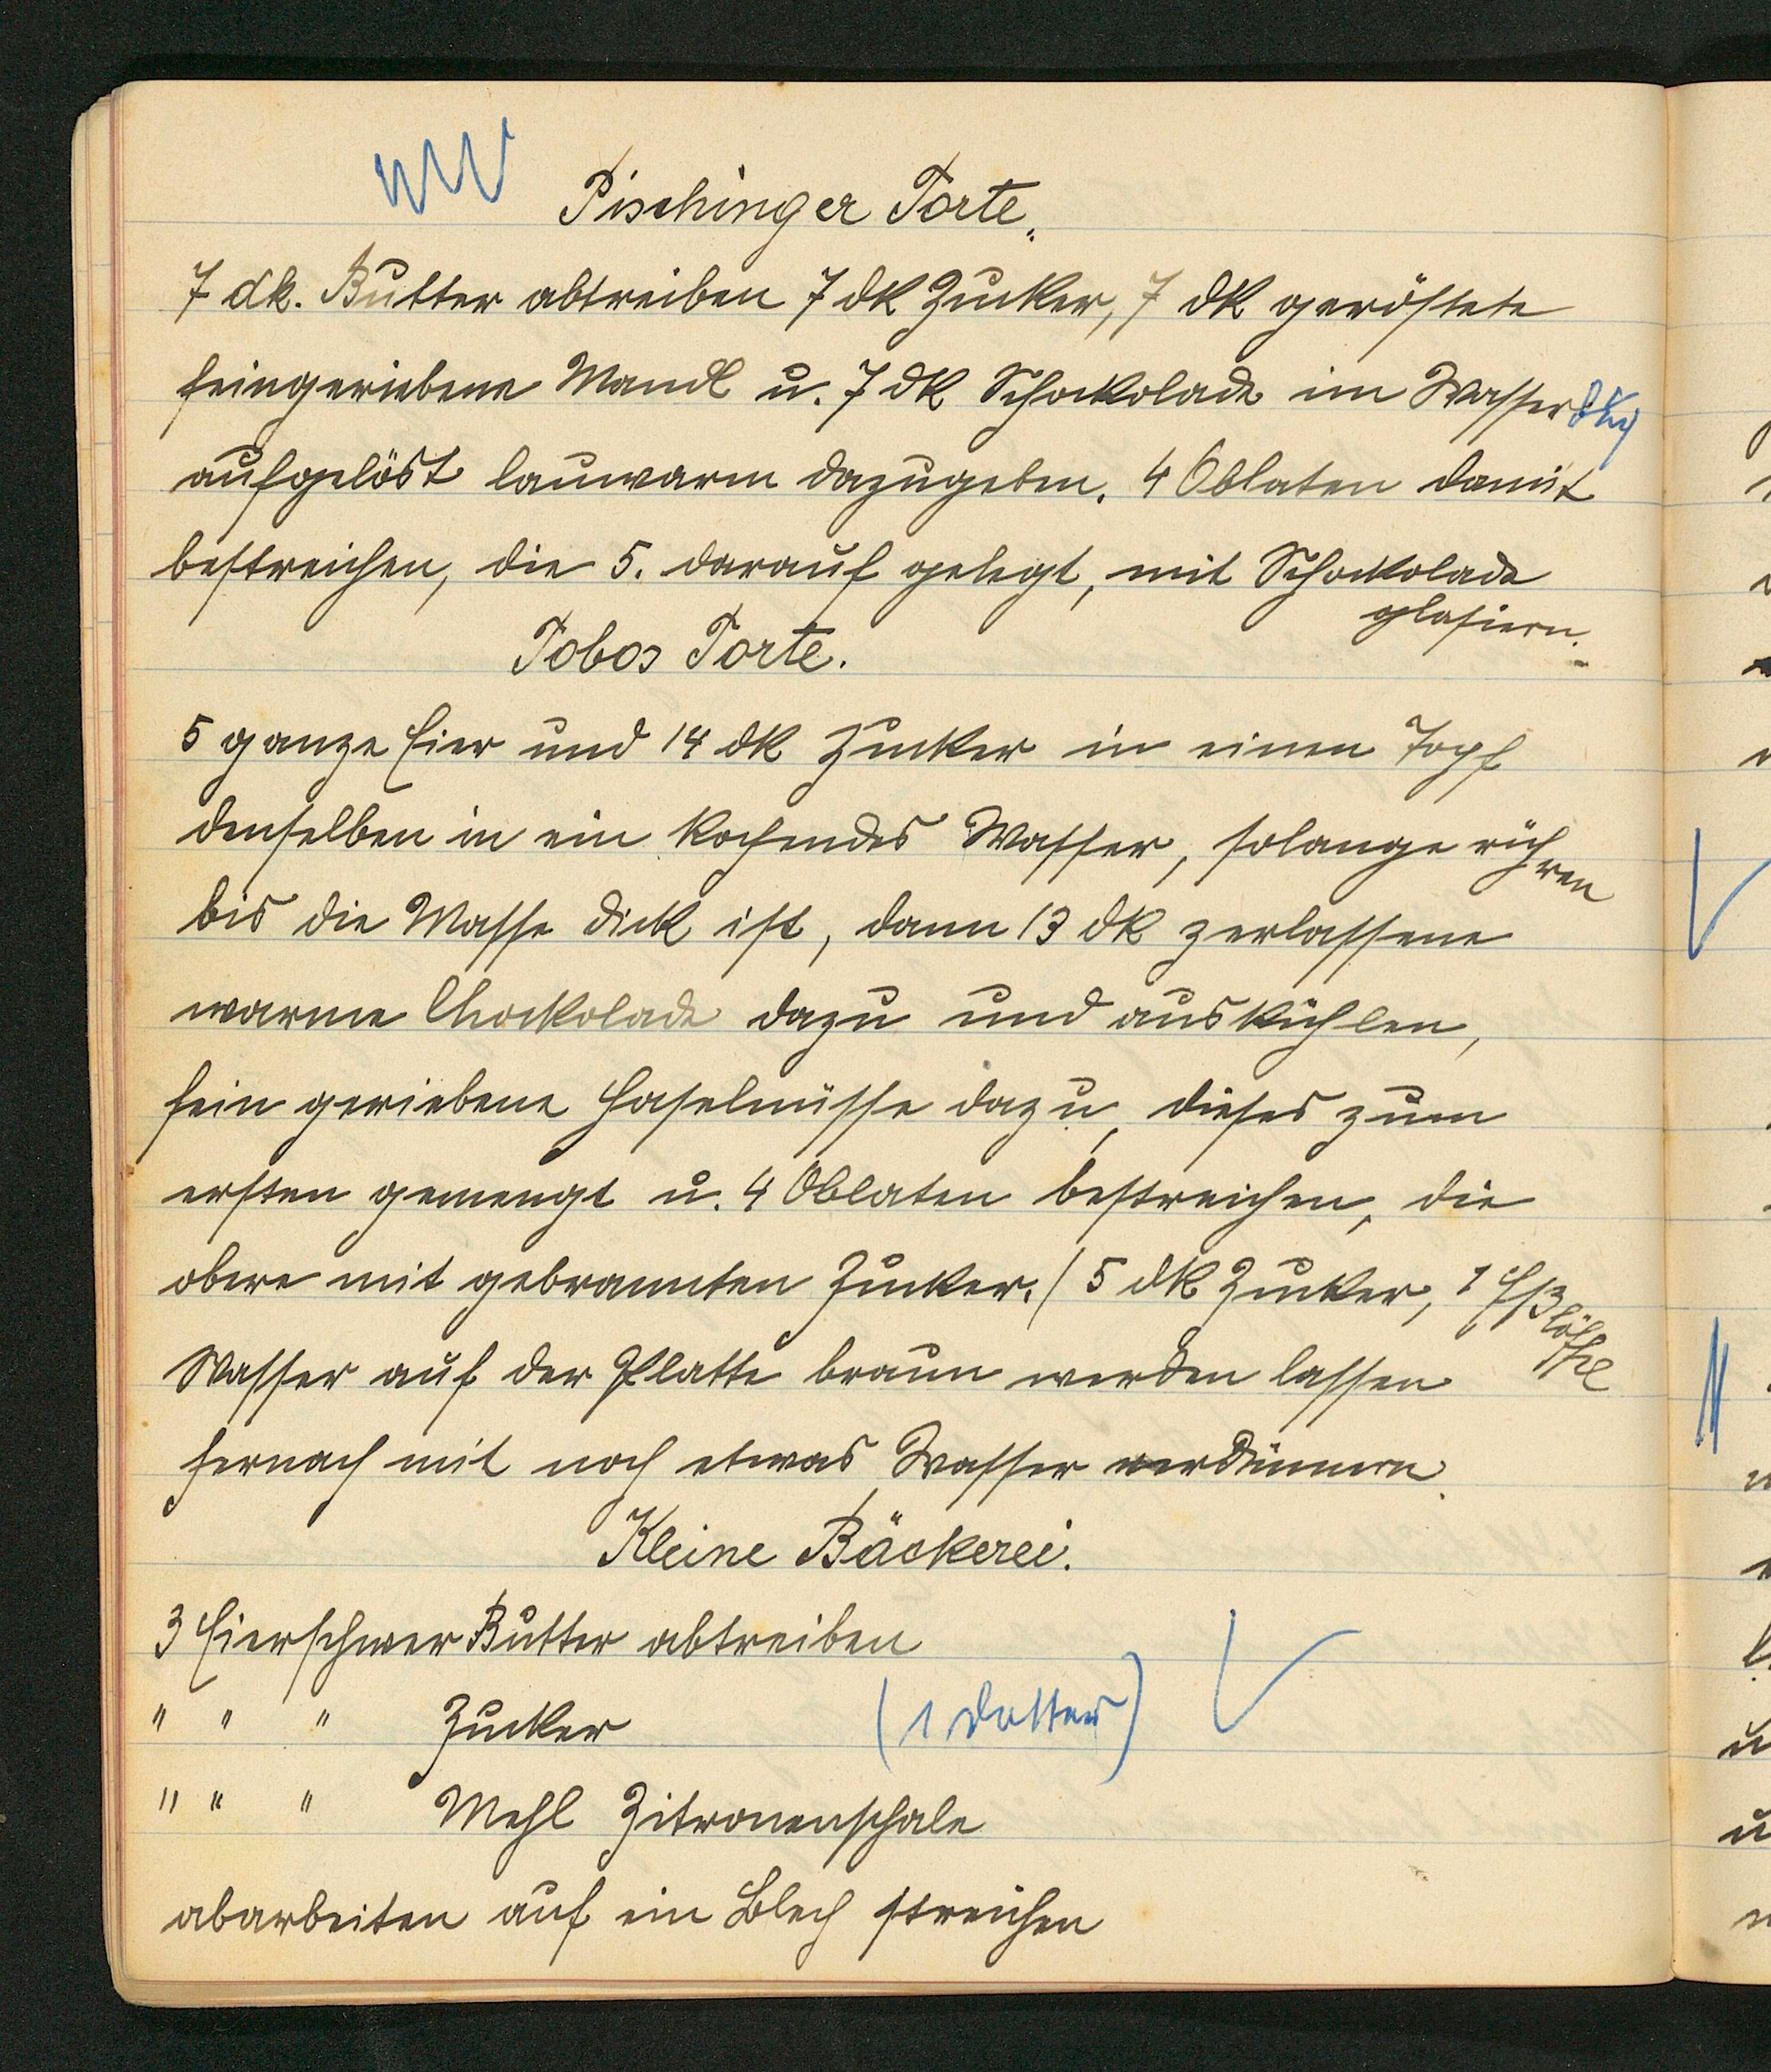 Pischinger Torte.
7 dk. Butter abtreiben 7 dk Zucker, 7 dk geröstete
feingeriebene Mandl u. 7 dk Schockolade im Wasser
aufgelöst lauwarm dazugeben. 4 Oblaten damit
bestreichen, die 5. darauf gelegt, mit Schockolade
glasiern.
Tobos Torte.
5 ganze Eier und 14 dk Zucker in einen Topf
denselben in ein kochendes Wasser, solange rühren
bis die Masse dick ist, dann 13 dk zerlassene
warme Chockolade dazu und auskühlen,
fein geriebene Haselnüsse dazu, dieses zum
ersten gemengt u. 4 Oblaten bestreichen, die
obere mit gebrannten Zucker. (5 dk Zucker, 1 Eßlöffel
Wasser auf der Platte braun werden lassen
hernach mit noch etwas Wasser verdünnern.
Kleine Bäckerei.
3 Eierschwer Butter abtreiben
" " " Zucker (1 Dotter)
" " " Mehl Zitronenschale
abarbeiten auf ein Blech streichen